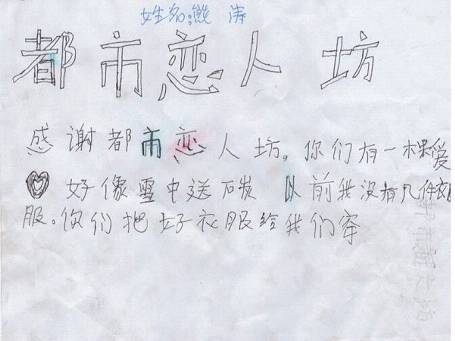 姓名:熊涛
都市恋人坊
感谢都市恋人坊。你们有一棵爱
好像雪中送石炭 以前我没有几件衣
服。你们把好衣服给我们穿